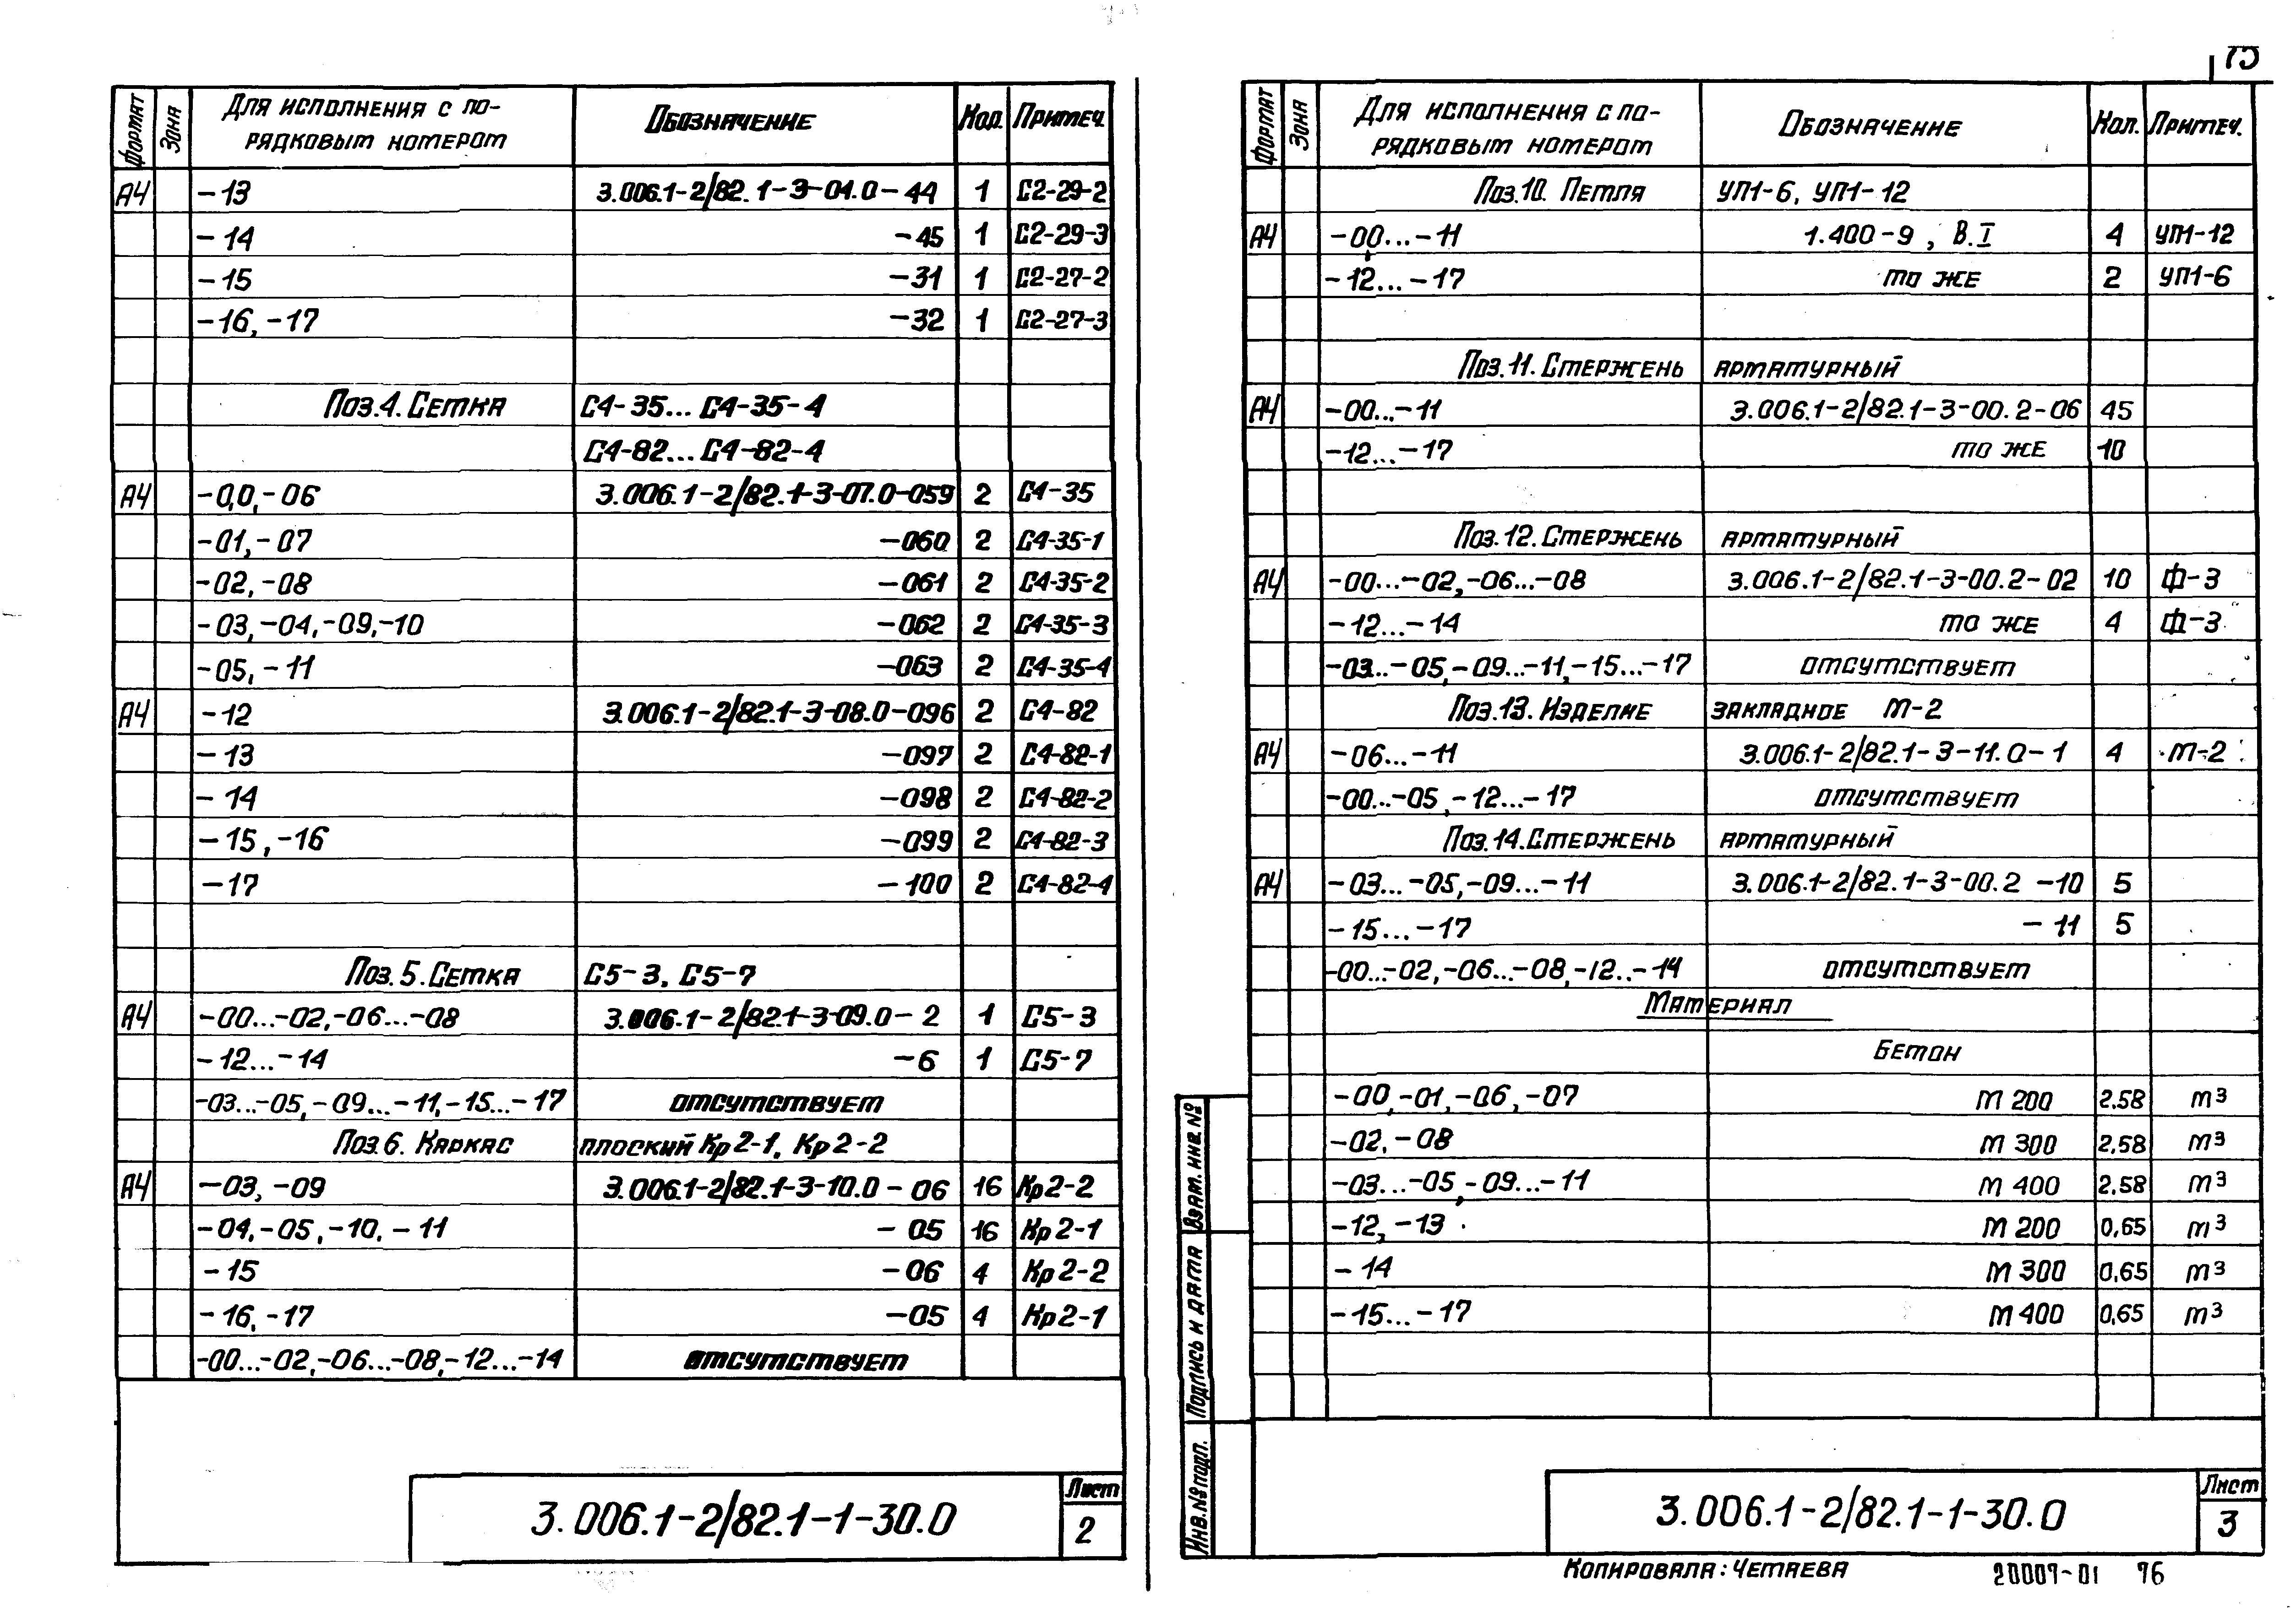 75
Формат Зона Для исполнения с по- Обозначение Кол. Примеч.
рядковым номером
А4 -13 3.006.1-2/82.1-3-01.0-44 1 С2-29-2
-14 -45 1 С2-29-3
-15 -31 1 С2-27-2
-16,-17 -32 1 С2-27-3
Поз.4. Сетка С4-35...С4-35-4
С4-82...С4-82-4
А4 -00,-06 3.006.1-2/82.1-3-07.0-059 2 С4-35
-01,-07 -060 2 С4-35-1
-02,-08 -061 2 С4-35-2
-03,-04,-09,-10 -062 2 С4-35-3
-05,-11 -063 2 С4-35-4
А4 -12 3.006.1-2/82.1-3-08.0-096 2 С4-82
-13 -097 2 С4-82-1
-14 -098 2 С4-82-2
-15,-16 -099 2 С4-82-3
-17 -100 2 С4-82-4
Поз.5. Сетка С5-3, С5-7
А4 -00...-02,-06...-08 3.006.1-2/82.1-3-09.0-2 1 С5-3
-12...-14 -6 1 С5-7
-03...-05,-09...-11,-15...-17 отсутствует
Поз.6. Каркас плоский Кр2-1, Кр2-2
А4 -03,-09 3.006.1-2/82.1-3-10.0-06 16 Кр2-2
-04,-05,-10,-11 -05 16 Кр2-1
-15 -06 4 Кр2-2
-16,-17 -05 4 Кр2-1
-00...-02,-06...-08,-12...-14 отсутствует
3.006.1-2/82.1-1-30.0
Лист
2
Формат Зона Для исполнения с по- Обозначение Кол. Примеч.
рядковым номером
Поз.10. Петля УП1-6, УП1-12
А4 -00...-11 1.400-9, В.I 4 УП1-12
-12...-17 то же 2 УП1-6
Поз.11. Стержень арматурный
А4 -00...-11 3.006.1-2/82.1-3-00.2-06 45
-12...-17 то же 10
Поз.12. Стержень арматурный
А4 -00...-02,-06...-08 3.006.1-2/82.1-3-00.2-02 10 Ф-3
-12...-14 то же 4 Ф-3
-03...-05,-09...-11,-15...-17 отсутствует
Поз.13. Изделие закладное М-2
А4 -06...-11 3.006.1-2/82.1-3-11.0-1 4 М-2
-00...-05,-12...-17 отсутствует
Поз.14. Стержень арматурный
А4 -03...-05,-09...-11 3.006.1-2/82.1-3-00.2-10 5
-15...-17 -11 5
-00...-02,-06...-08,-12...-14 отсутствует
Материал
Бетон
-00,-01,-06,-07 М 200 2.58 м³
-02,-08 М 300 2.58 м³
-03...-05,-09...-11 М 400 2.58 м³
-12,-13 М 200 0,65 м³
-14 М 300 0,65 м³
-15...-17 М 400 0,65 м³
Взам. инв. №
Подпись и дата
Инв. № подл.
3.006.1-2/82.1-1-30.0
Лист
3
Копировала: Четаева
20007-01 76